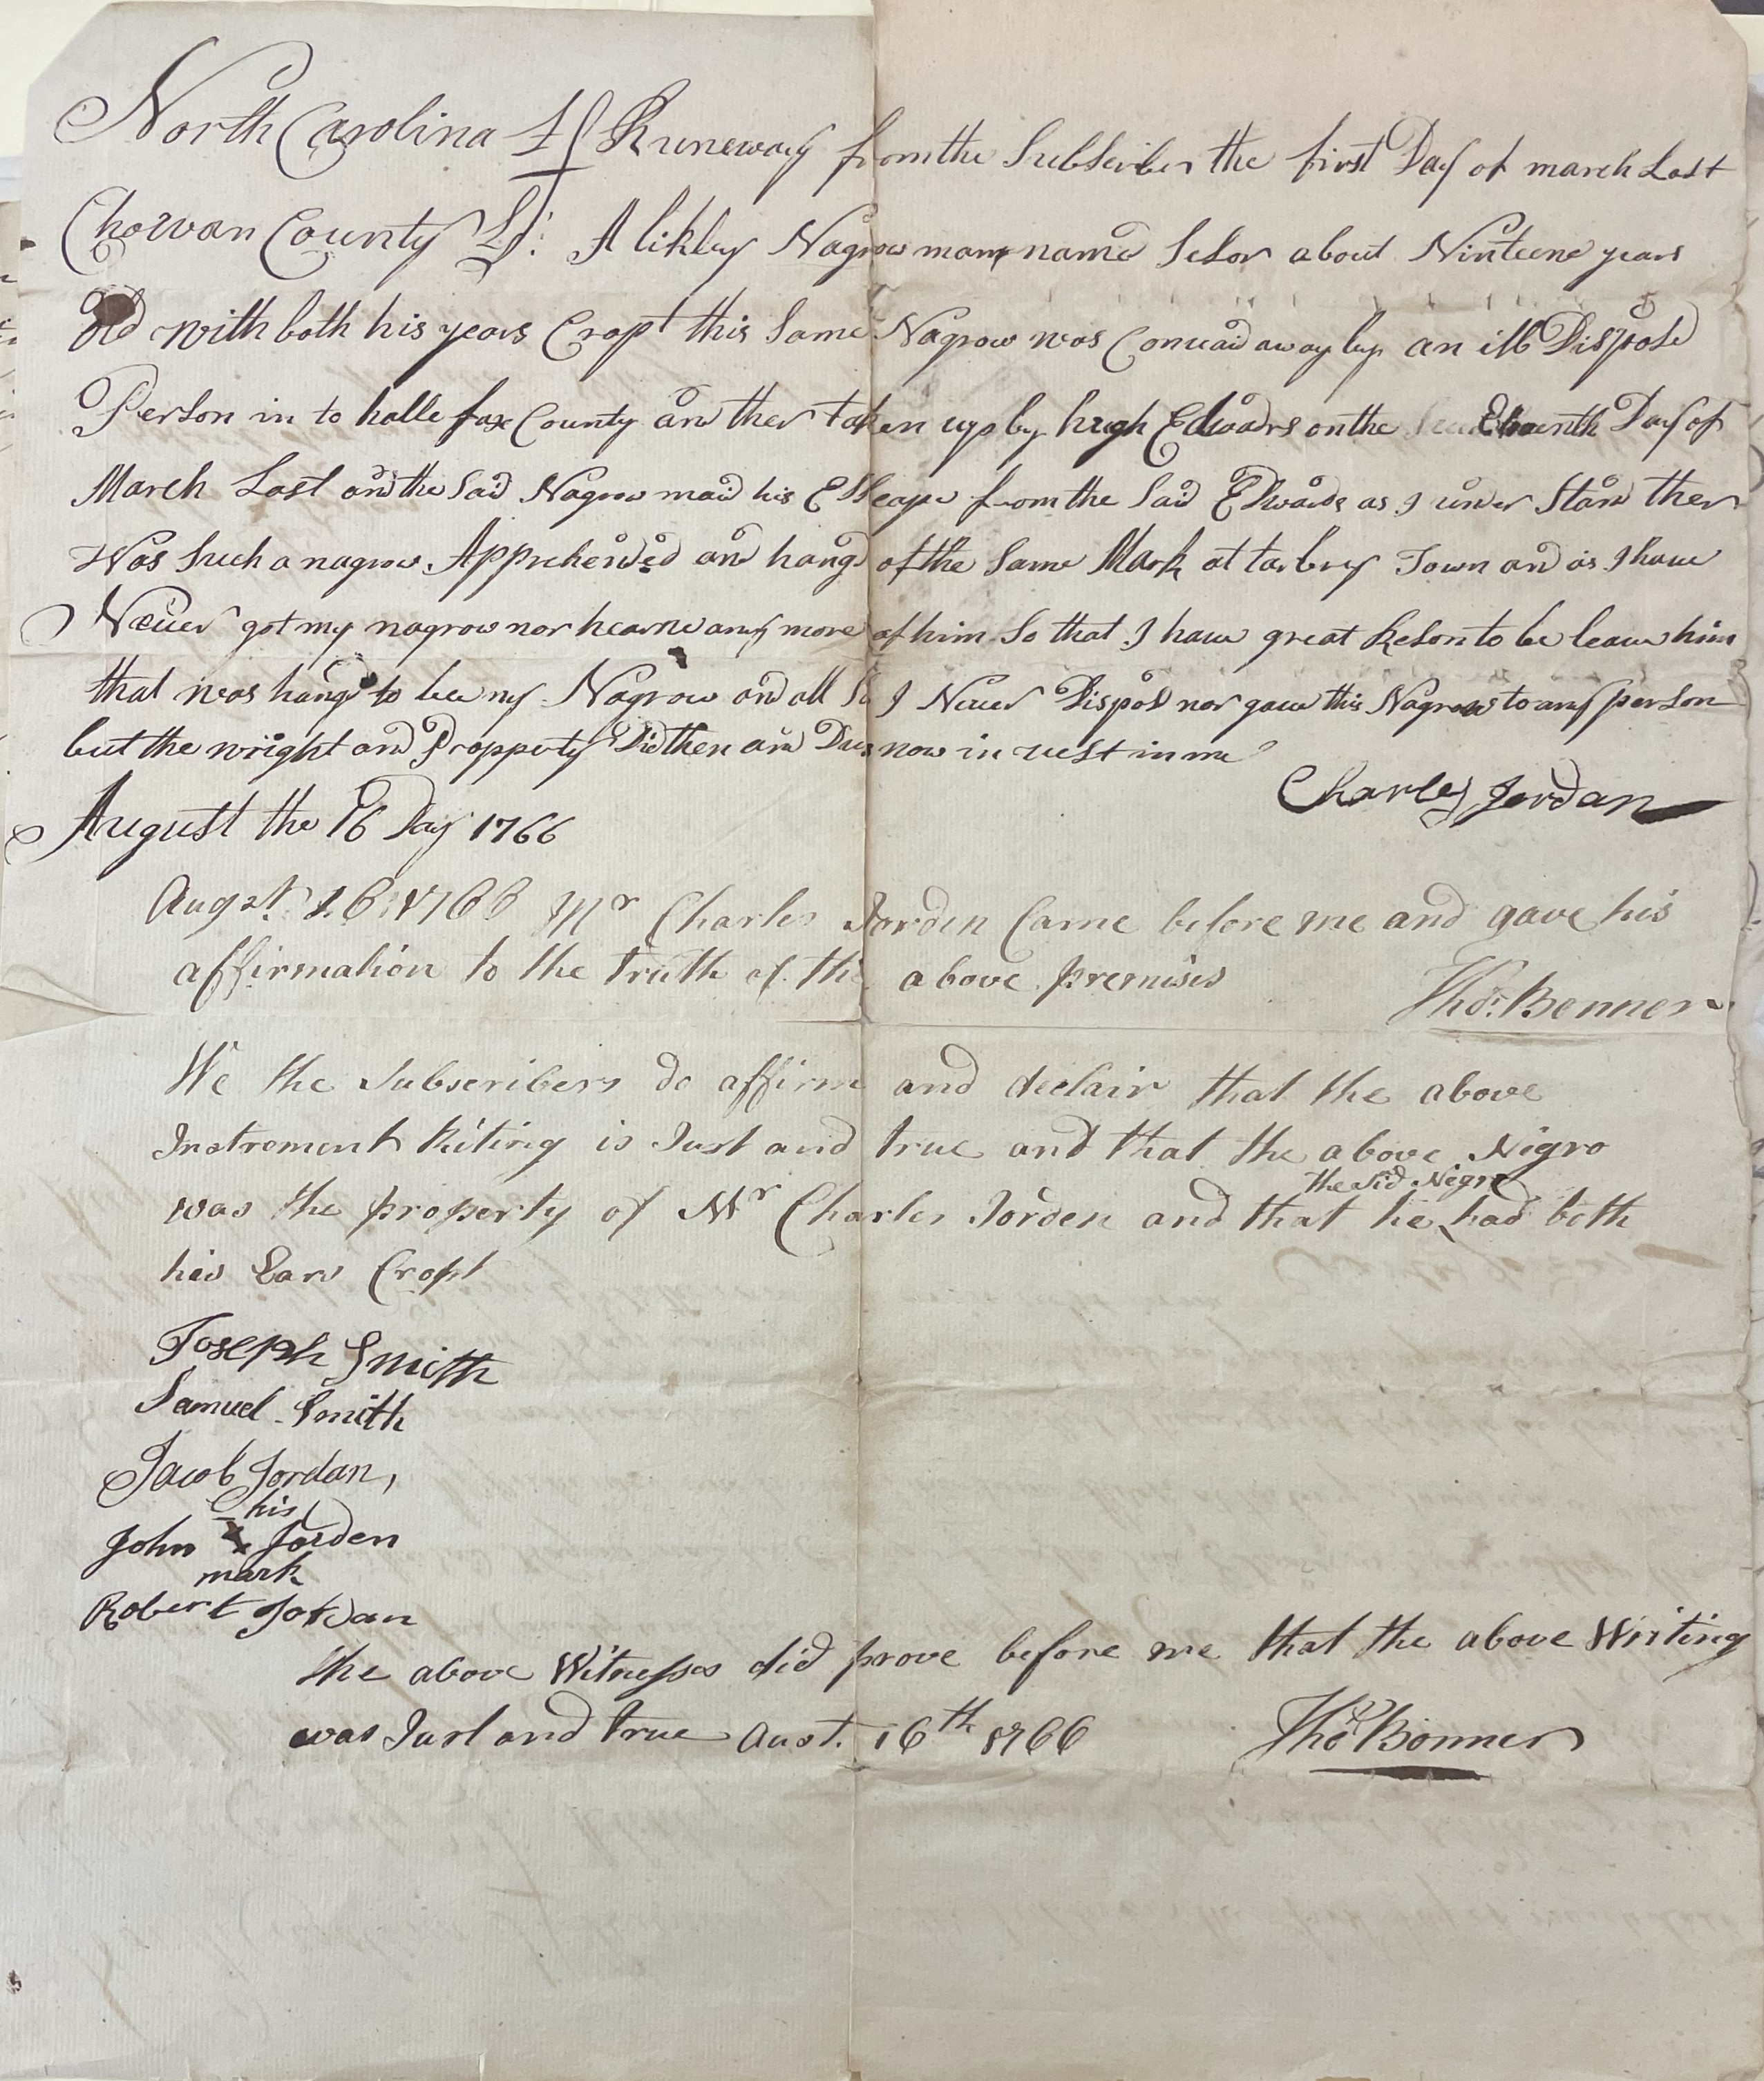 North Carolina Runeway from the Subscriber the first Day of march Last
Chowan County Ss: A likley Nagrow man namd Sesor about Ninteene years
old with both his years Cropt this Same Nagrow was Conuaid away by an ill Disposd
Person in to halle fax County and ther taken up by hugh Edwards on the Eleuenth Day of
March Last and the Said Nagrow maid his Esscape from the Said Edwards as I under Stand ther
Was Such a nagrow Apprehended and hangd of the Same Mark at tarbrey Town and as I haue
Neuer got my nagrow nor hearne any more of him So that I haue great Reson to be leaue him
that was hangd to bee my Nagrow and all So I Neuer Disposd nor gaue this Nagrow to any person
but the wright and Propperty Did then and Dus now in uest in me
Charles Jordan
August the 16 Day 1766
Augst. 16 1766 Mr Charles Jorden Came before me and gave his
affirmation to the truth of the above premises
Thos. Bonner
We the Subscribers do affirm and declair that the above
Instrement Riting is Just and true and that the above Nigro
the sid Nigro
was the property of Mr Charles Jorden and that he had both
his Ears Cropt
Joseph Smith
Samuel Smith
Jacob Jordan,
his
John x Jorden
mark
Robert Jordan
the above Witnesses did prove before me that the above Writing
was Just and true Aust. 16th 1766 Thos Bonner